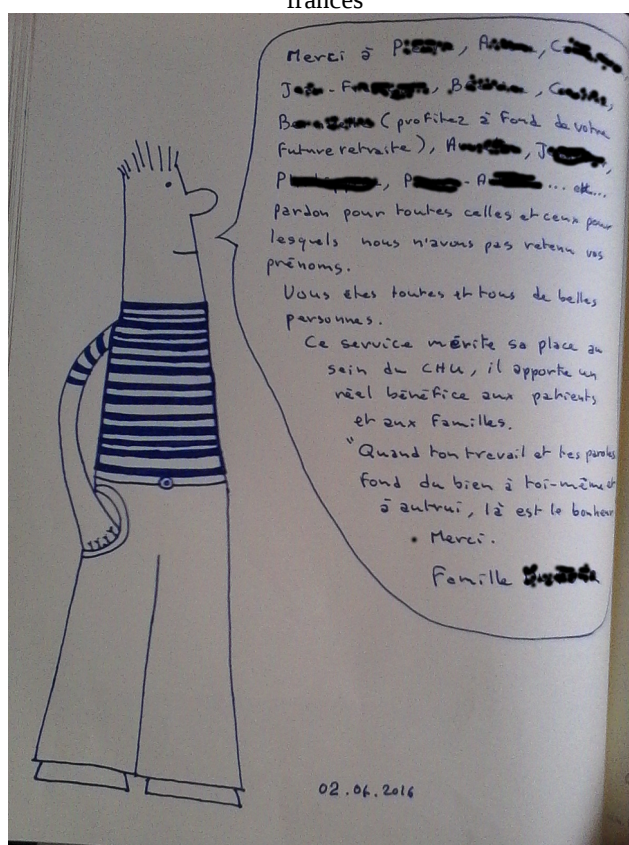 francés
Merci à
(profitez à fond de votre
future retraite),
pardon pour toutes celles et ceux pour
lesquels nous n'avons pas retenu vos
prénoms.
Vous êtes toutes et tous de belles
personnes.
Ce service mérite sa place au
sein du CHU, il apporte un
réel bénéfice aux patients
et aux familles.
"Quand ton travail et tes paroles
fond du bien à toi-même et
à autrui, là est le bonheur
• Merci.
Famille
02.06.2016